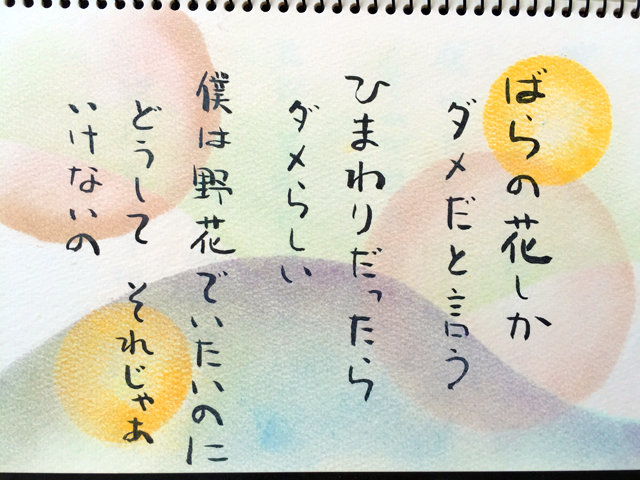 ばらの花しか
ダメだと言う
ひまわりだったら
ダメらしい
僕は野花でいたいのに
どうして それじゃあ
いけないの